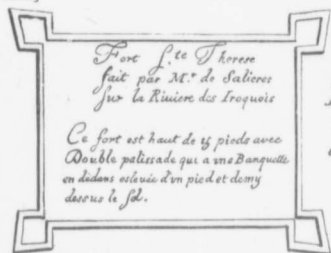 Fort S.te Therese
fait par M.r de Salieres
sur la Riuiere des Iroquois
Ce fort est haut de 15 pieds avec
Double palissade qui a vne Banquette
en dedans esleuée d'vn pied et demy
dessus le sol.